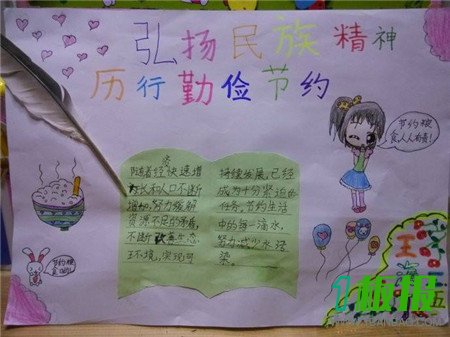 弘扬民族精神
历行勤俭节约
随着经济快速增
长和人口不断
增加,努力缓解
资源不足的矛盾,
不断改善生态
环境,实现可
持续发展,已经
成为十分紧迫的
任务,节约生活
中的每一滴水,
努力减少水污
染。
节约粮
食人人有责!
节约粮
食哦!
王
五
1板报